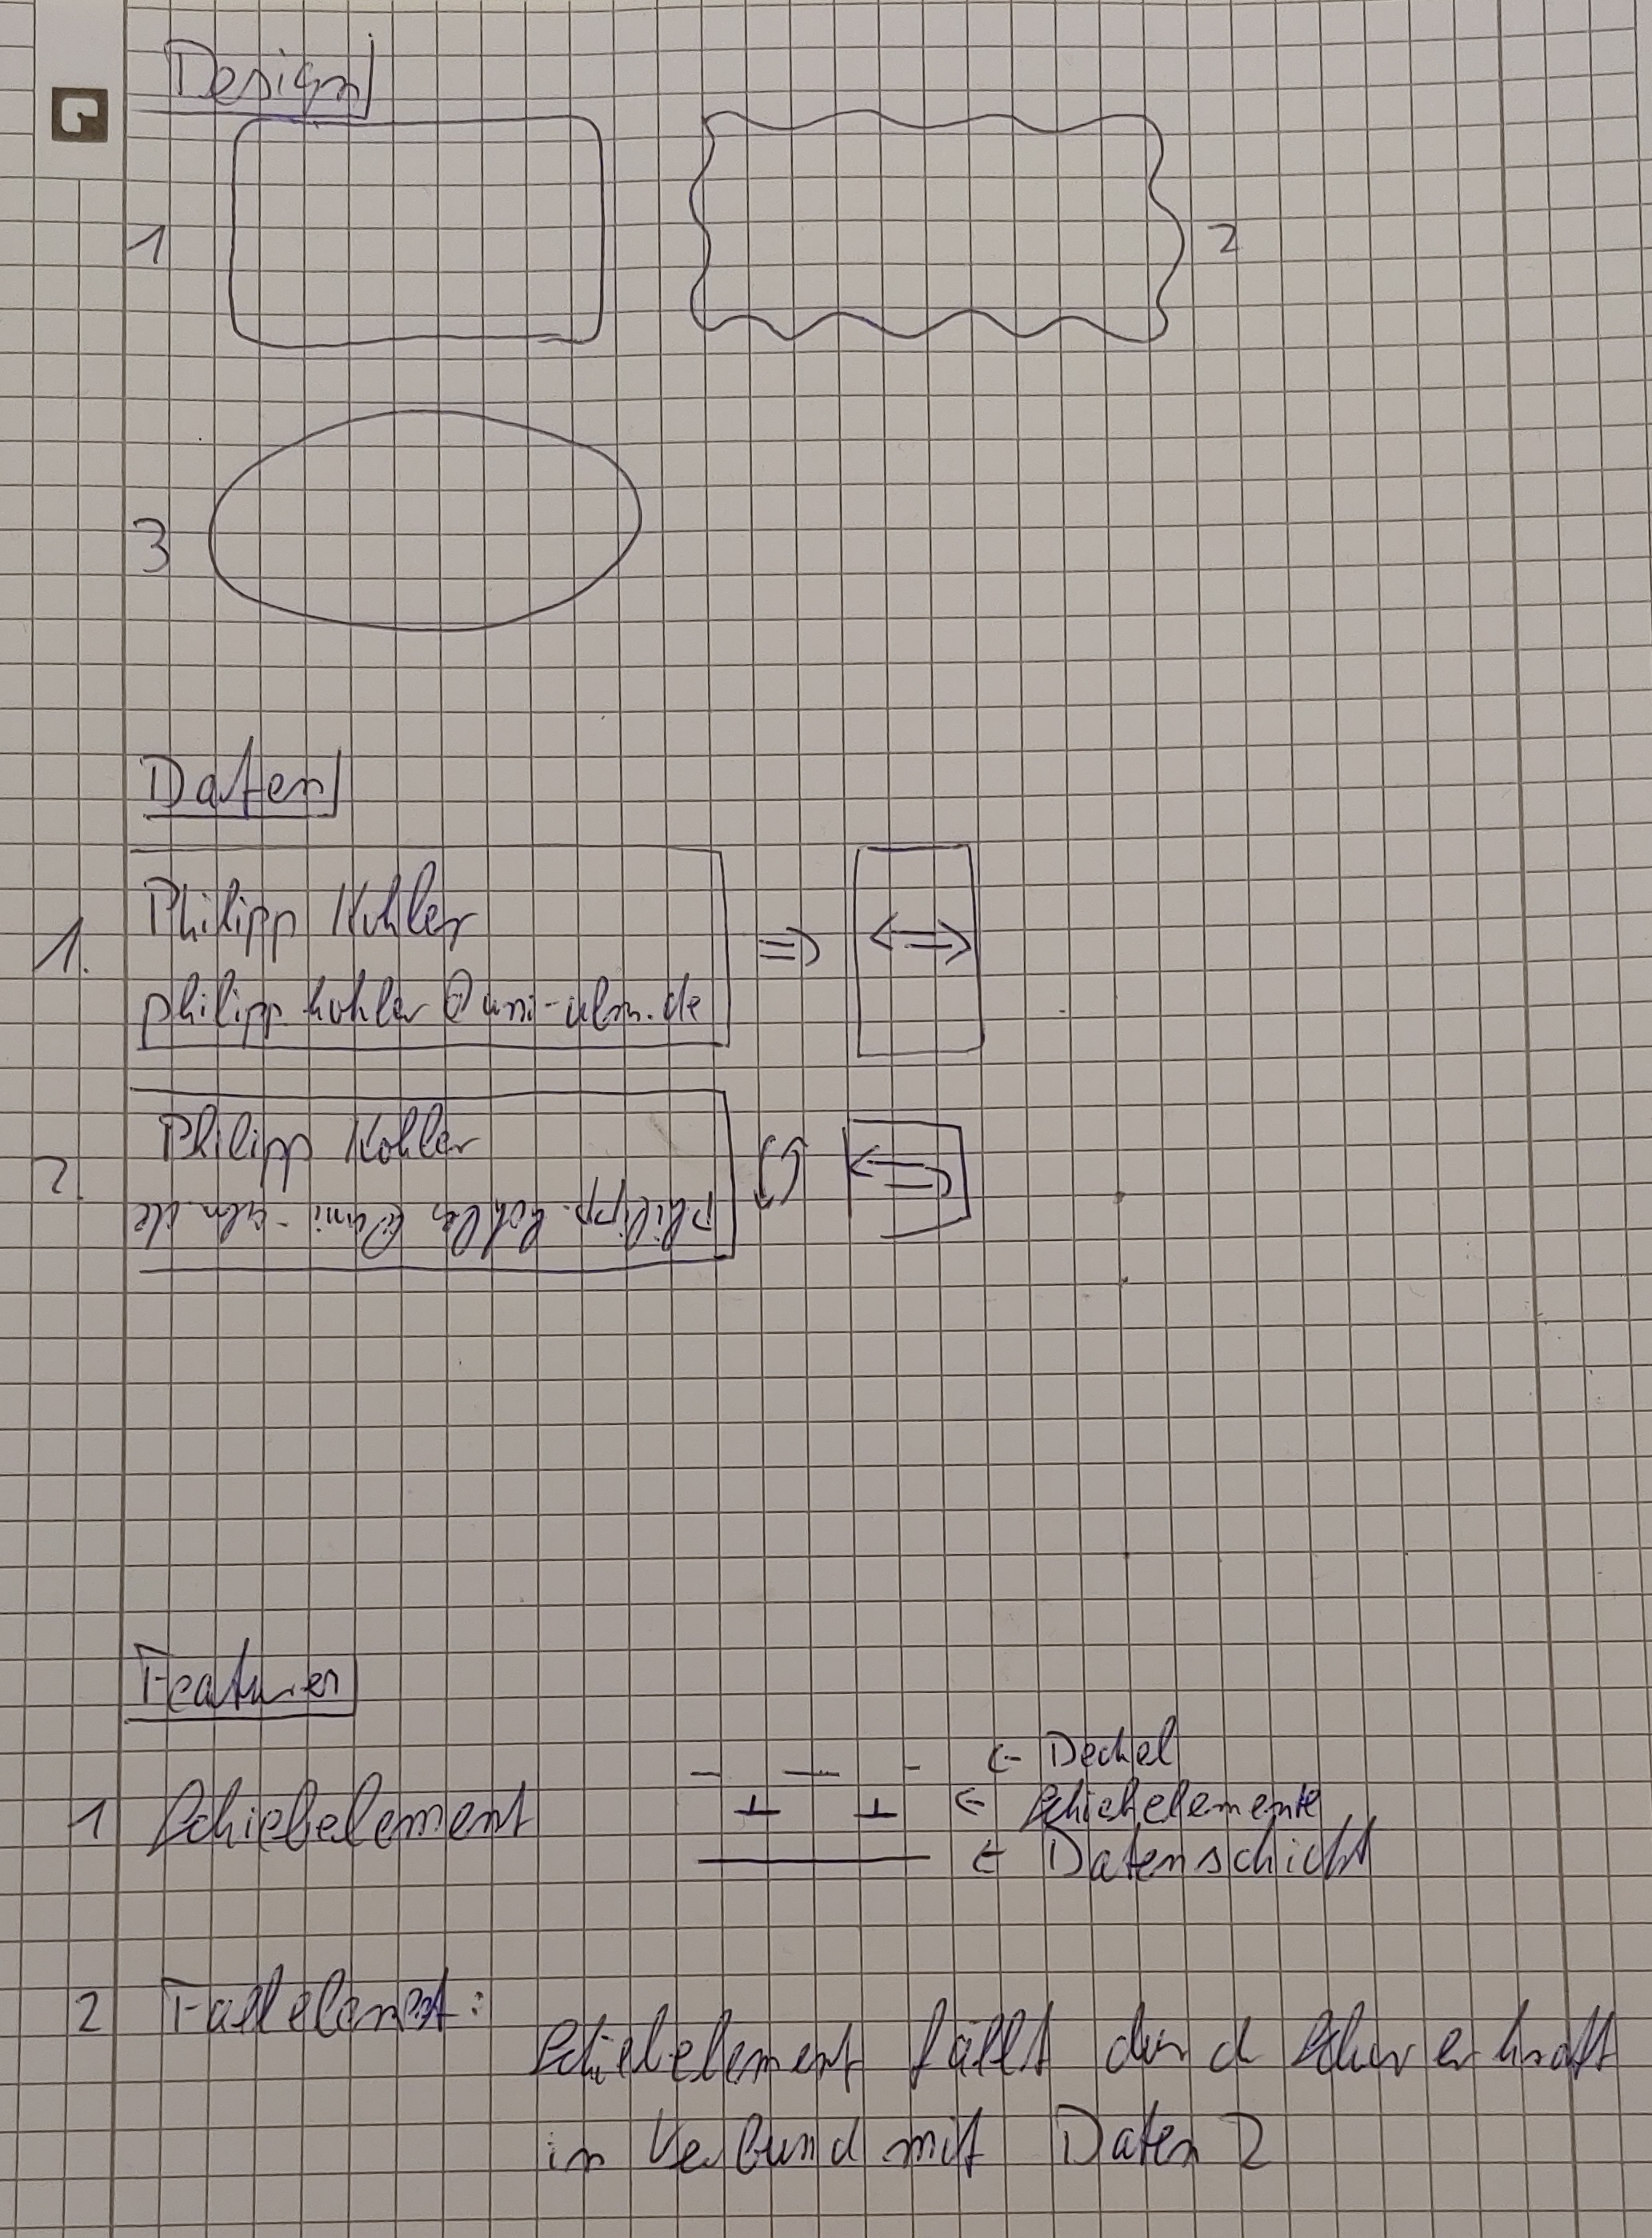 Design
1
2
3
Daten
1.
Philipp Kohler
philipp.kohler@uni-ulm.de
2.
Philipp Kohler
philipp.kohler@uni-ulm.de
Features
1 Schiebelement
← Deckel
← Schiebelemente
← Datenschicht
2 Fallelement:
Schiebelement fällt durch Schwerkraft
in Verbund mit Daten 2